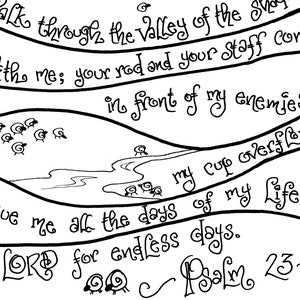 alk through the valley of the shad
th me; your rod and your staff com
in front of my enemies
my cup overflow
ve me all the days of my life
LORD for endless days.
Psalm 23